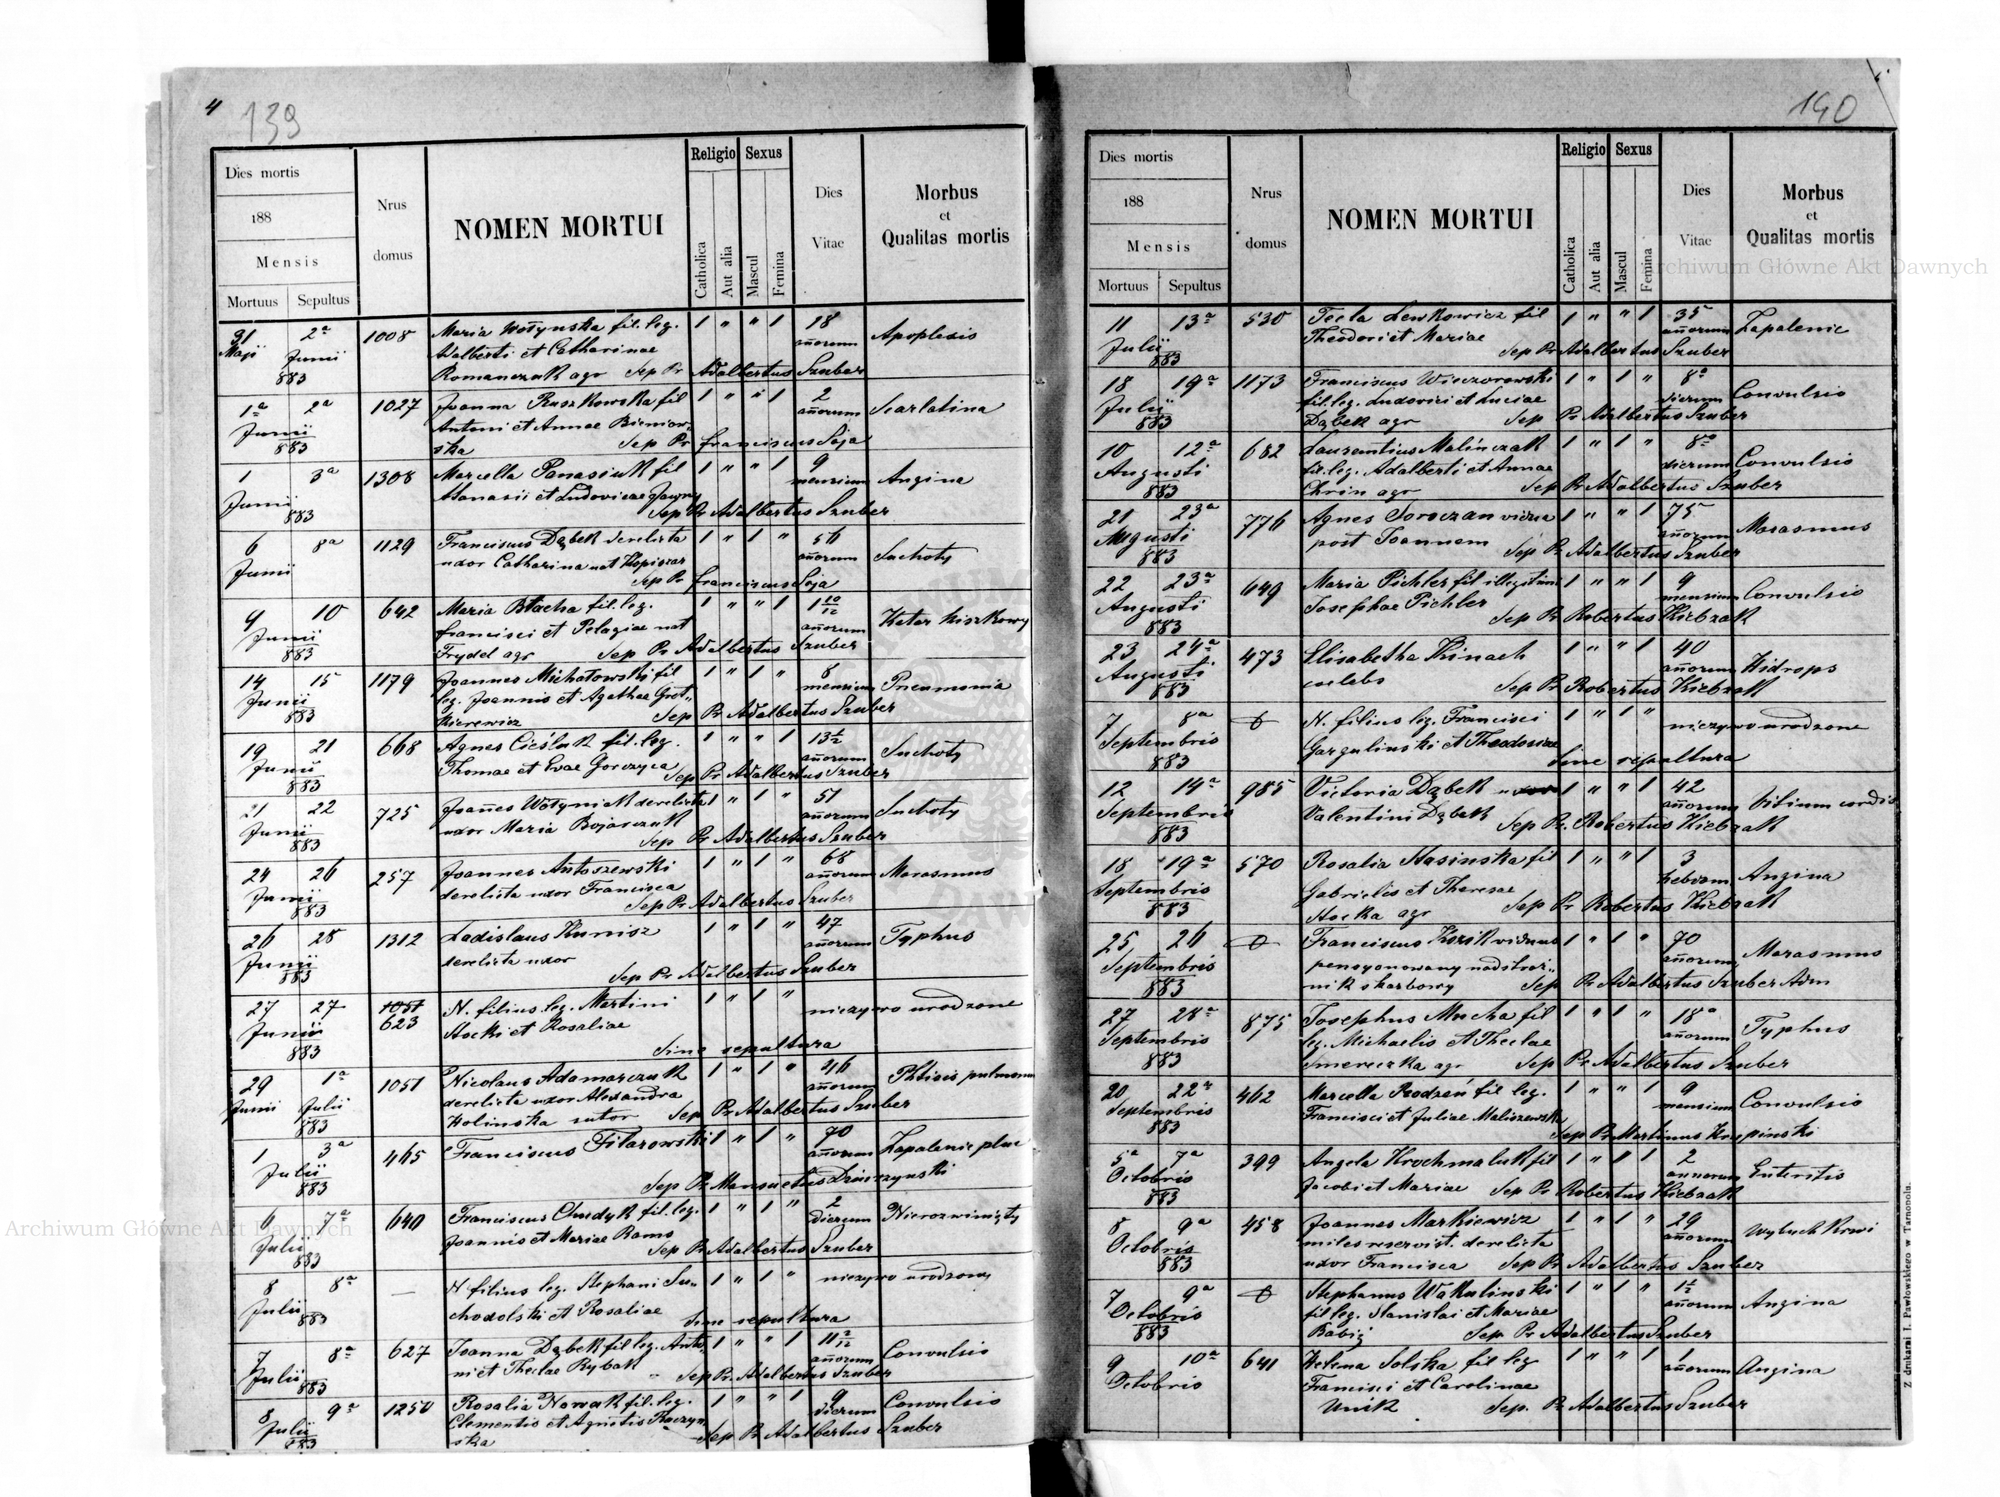 4 139
Dies mortis
188
Mensis
Mortuus Sepultus
Nrus domus
NOMEN MORTUI
Religio
Catholica
Aut alia
Sexus
Mascul
Femina
Dies Vitae
Morbus
et
Qualitas mortis
31 2a 1008 Maria Wołynska fil. leg. 1 " " 1 18 Apoplesio
Maji Junii Adalberti et Catharinae añorum
883 Romanczuk agr Sep Pr Adalbertus Szuber
1a 2a 1027 Joanna Ruszkowska fil 1 " " 1 2 Scarlatina
Junii Antoni et Annae Bieniow- añorum
883 ska Sep Pr Franciscus Soja
1 3a 1308 Marcella Panasiuk fil 1 " " 1 9 Angina
Junii Atanasii et Ludovicae mensium
883 Sep Pr Adalbertus Szuber
6 8a 1129 Franciscus Dąbek derelicta 1 " 1 " 56 Suchoty
Junii uxor Catharina nat añorum
Sep Pr Franciscus Soja
9 10 642 Maria Blacha fil. leg. 1 " " 1 1 10/12 Katar kiszkowy
Junii Francisci et Pelagiae nat añorum
883 Frydel agr Sep Pr Adalbertus Szuber
14 15 1179 Joannes Michałowski fil 1 " 1 " 8 Pneumonia
Junii leg. Joannis et Agathae Grot- mensium
883 kierewicz Sep Pr Adalbertus Szuber
19 21 668 Agnes Cieślak fil. leg. 1 " " 1 13½ Suchoty
Junii Thomae et Evae Gorczyca añorum
883 Sep Pr Adalbertus Szuber
21 22 725 Joañes Wołyniak derelicta 1 " 1 " 51 Suchoty
Junii uxor Maria Bojarczuk añorum
883 Sep Pr Adalbertus Szuber
24 26 257 Joannes Antoszewski 1 " 1 " 68 Marasmus
Junii derelicta uxor Francisca añorum
883 Sep Pr Adalbertus Szuber
26 28 1312 Ladislaus Kunisz 1 " 1 " 47 Typhus
Junii derelicta uxor añorum
883 Sep Pr Adalbertus Szuber
27 27 1051 N. filius leg. Martini 1 " 1 " nieżywo urodzone
Junii 623 Hocki et Rosaliae
883 Sine sepultura
29 1a 1051 Nicolaus Adamarczuk 1 " 1 " 46 Phtisis pulmonum
Junii Julii derelicta uxor Alexandra añorum
883 Holinska sutor Sep Pr Adalbertus Szuber
1 3a 465 Franciscus Filarowski 1 " 1 " 70 Zapalenie płuc
Julii añorum
883 Sep Pr Mansuetus
6 7a 640 Franciscus Chudyk fil. leg. 1 " 1 " 2 Nierozwinięty
Julii Joannis et Mariae Rams dierum
883 Sep Pr Adalbertus Szuber
8 8a — N filius leg. Stephani Su- 1 " 1 " nieżywo urodzony
Julii chodolski et Rosaliae
883 Sine sepultura
7 8a 627 Joanna Dąbek fil leg. Anto- 1 " " 1 11 2/12 Convulsio
Julii ni et Theclae Rybak añorum
883 Sep Pr. Adalbertus Szuber
8 9a 1250 Rosalia Nowak fil. leg. 1 " " 1 9 Convulsio
Julii Clementis et Agnetis Raczyn- dierum
883 ska Sep Pr Adalbertus Szuber
140
Dies mortis
188
Mensis
Mortuus Sepultus
Nrus domus
NOMEN MORTUI
Religio
Catholica
Aut alia
Sexus
Mascul
Femina
Dies Vitae
Morbus
et
Qualitas mortis
11 13a 530 Tecla Lewkowicz fil 1 " " 1 35 Zapalenie
Julii Theodori et Mariae añorum
883 Sep Pr Adalbertus Szuber
18 19a 1173 Franciscus Wieczorowski 1 " 1 " 8a Convulsio
Julii fil. leg. Ludovici et Luciae dierum
883 Dąbek agr Sep Pr Adalbertus Szuber
10 12a 682 Laurentius Malinczak 1 " 1 " 8a Convulsio
Augusti fil. leg. Adalberti et Annae dierum
883 Chrin agr Sep Pr Adalbertus Szuber
21 23a 776 Agnes Soroczan vidua 1 " " 1 75 Marasmus
Augusti post Joannem añorum
883 Sep Pr Adalbertus Szuber
22 23a 649 Maria Pichler fil illegitima 1 " " 1 9 Convulsio
Augusti Josephae Pichler mensium
883 Sep Pr Robertus Kiebzak
23 24a 473 Elisabetha Kinach 1 " " 1 40 Hidrops
Augusti celebs añorum
883 Sep Pr Robertus Kiebzak
7 8a N. filius leg. Francisci 1 " 1 " nieżywo urodzone
Septembris Gargulinski et Theodosiae
883 Sine sepultura
12 14a 985 Victoria Dąbek 1 " " 1 42 Vitium cordis
Septembris Valentini Dąbek añorum
883 Sep Pr. Robertus Kiebzak
18 19a 570 Rosalia Hasinska fil 1 " " 1 3 Angina
Septembris Gabrielis et Theresae hebdom
883 Hocka agr Sep Pr Robertus Kiebzak
25 26 Franciscus Kozik viduus 1 " 1 " 70 Marasmus
Septembris pensyonowany nadstraż- añorum
883 nik skarbowy Sep Pr Adalbertus Szuber Adm
27 28a 875 Josephus Mucha fil 1 " 1 " 18a Typhus
Septembris leg. Michaelis et Theclae añorum
883 Smereczka agr Sep Pr Adalbertus Szuber
20 22a 462 Marcella Brodzeń fil leg. 1 " " 1 9 Convulsio
Septembris Francisci et Juliae Maliszewska mensium
883 Sep Pr Martinus Krupinski
5a 7a 399 Angela Krochmaluk fil 1 " " 1 2 Enteritis
Octobris Jacobi et Mariae annorum
883 Sep Pr Robertus Kiebzak
8 9a 458 Joannes Markiewicz 1 " 1 " 29 Wybuch krwi
Octobris miles reservist. derelicta añorum
883 uxor Francisca Sep Pr Adalbertus Szuber
7 9a Stephanus Wakulinski 1 " 1 " 1½ Angina
Octobris fil leg. Stanislai et Mariae añorum
883 Babiż Sep Pr Adalbertus Szuber
9 10a 641 Helena Solska fil leg 1 " " 1 1 Angina
Octobris Francisci et Carolinae añorum
Unik Sep. Pr Adalbertus Szuber
Z drukarni J. Pawłowskiego w Tarnopolu.
Archiwum Główne Akt Dawnych
Archiwum Główne Akt Dawnych